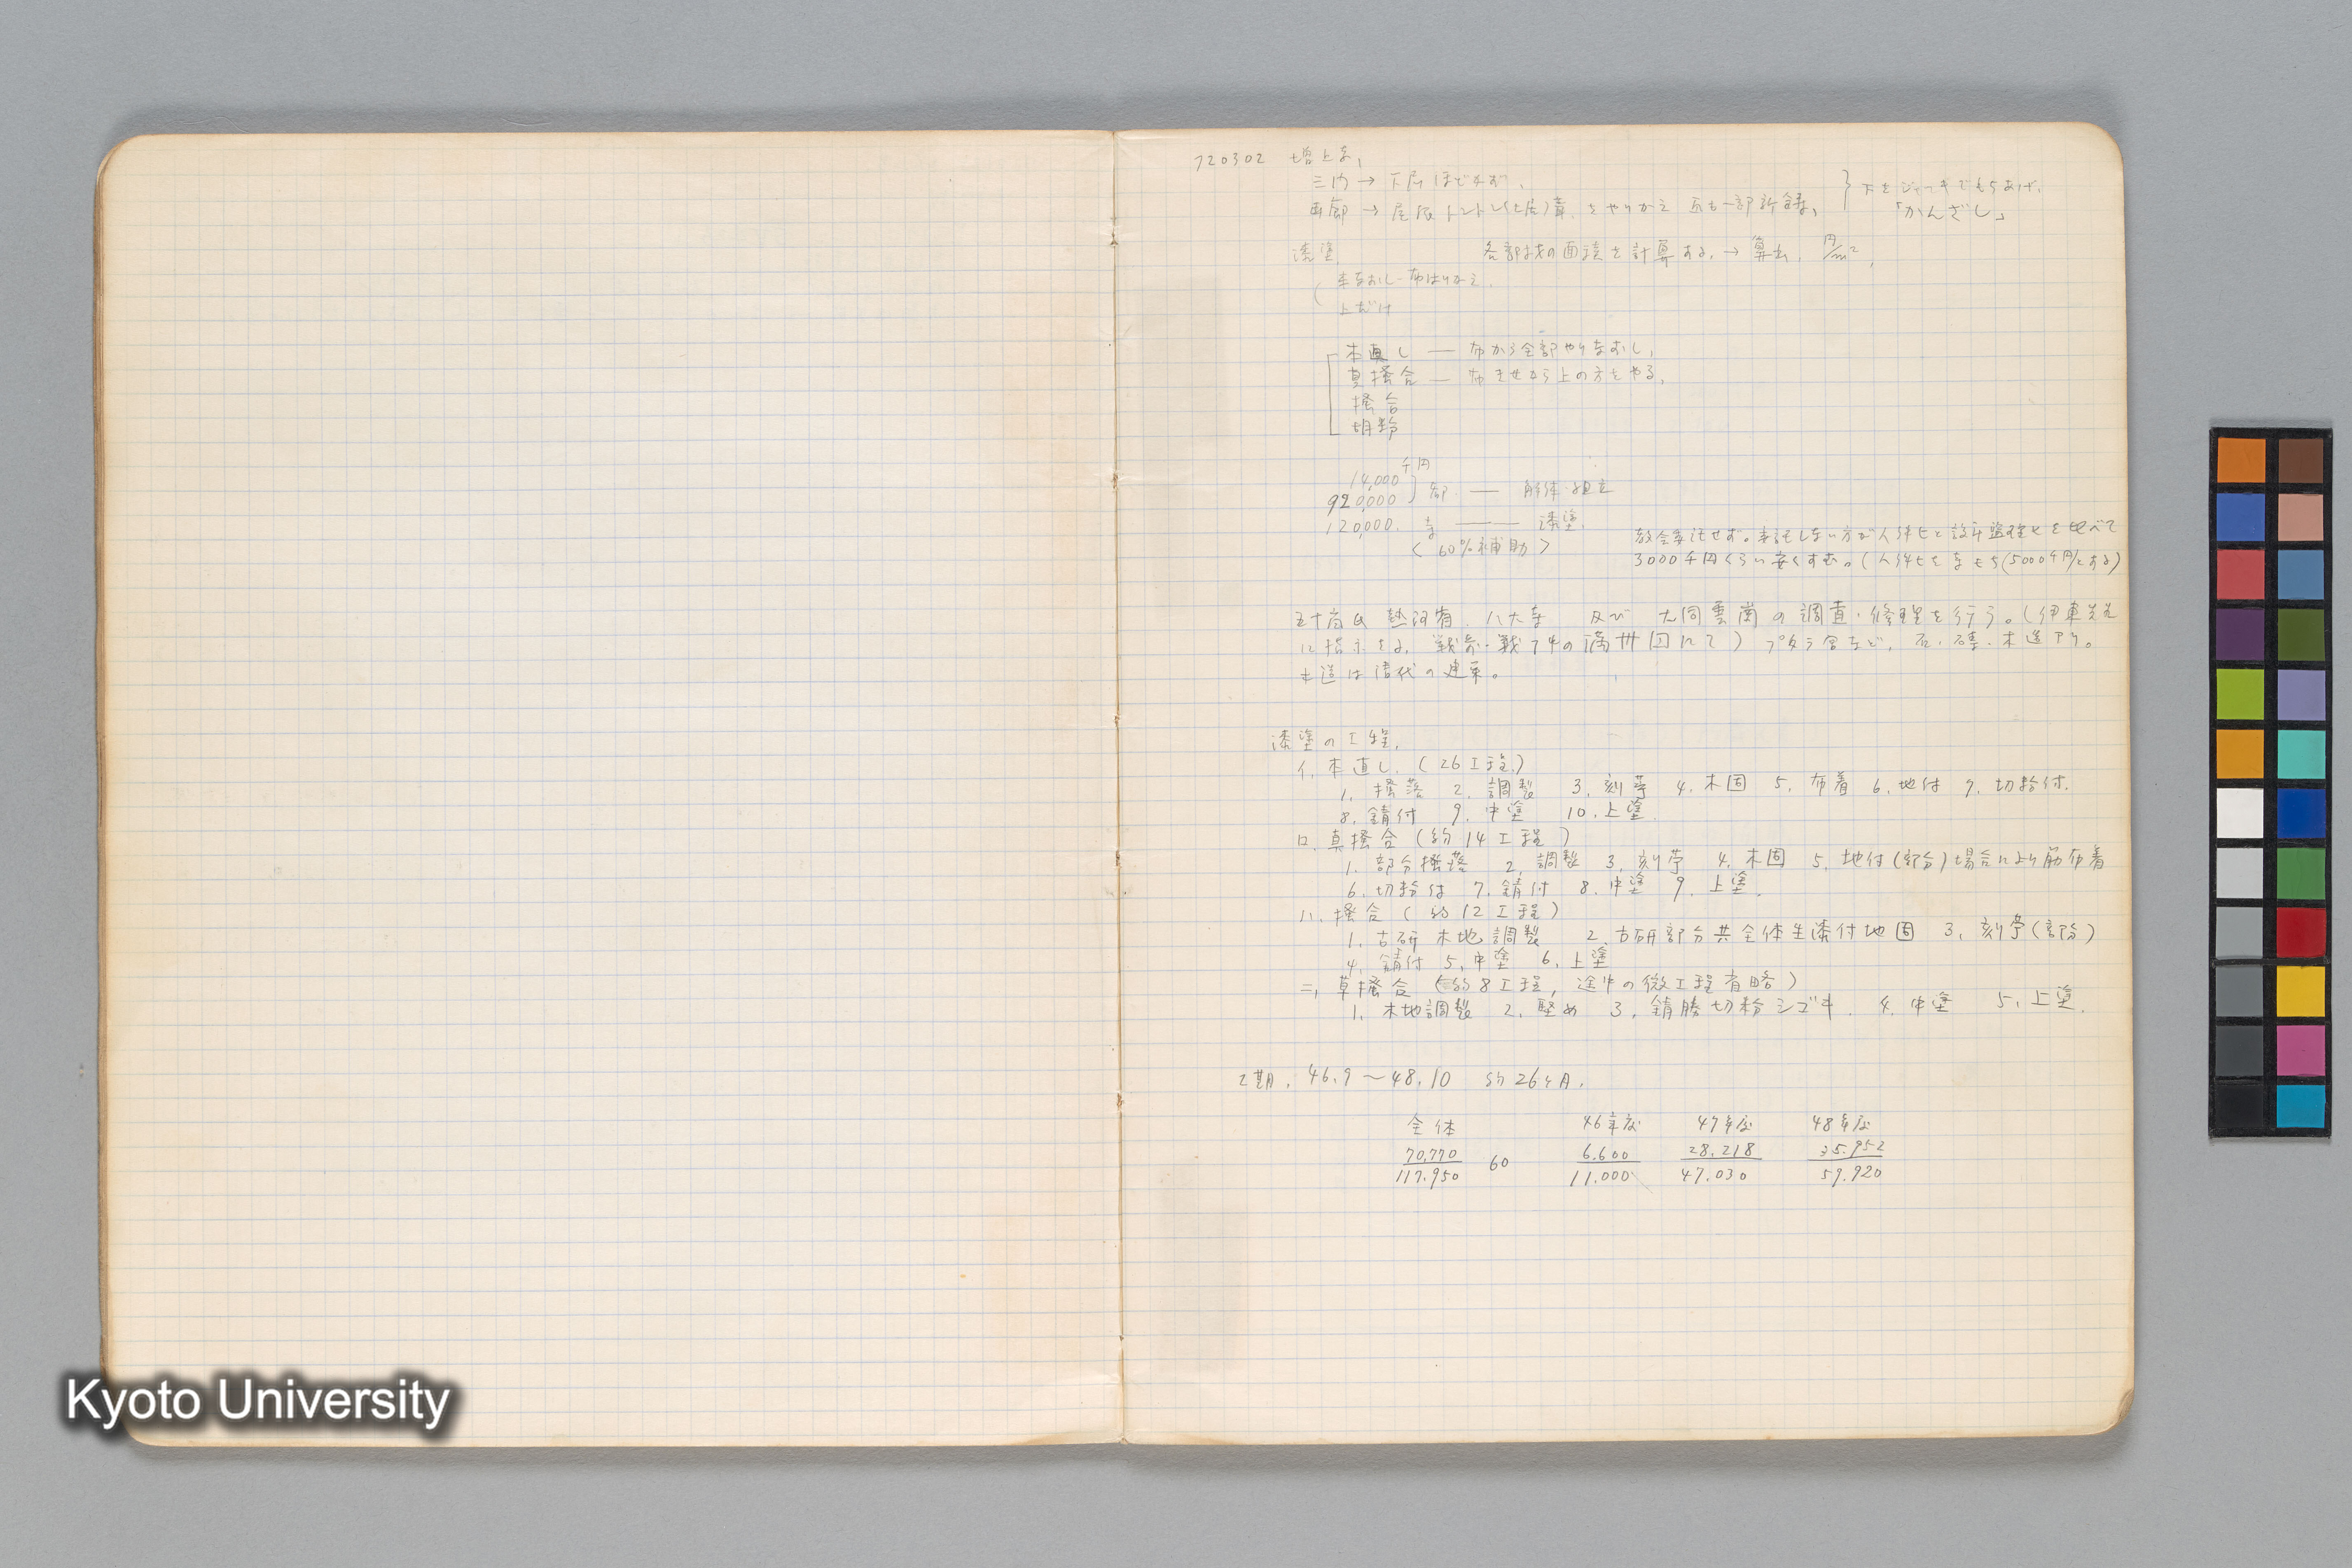 720302 増上寺,
三門 → 下層ほどかず.
両廊 → 屋根トントン(土居)葺.をやりかえ 瓦も一部新補,
} 下をジャッキでもちあげ.
「かんざし」
漆塗. 各部材の面積を計算する.→ 算出. 円/m²,
本なおし-布はりかえ.
上だけ
本直し — 布から全部やりなおし,
真掻合 — 布きせから上の方をやる,
掻合
胡粉
千円
14,000
920,000 } 都 — 解体・組立
120,000. 寺 — 漆塗.
< 60%補助 >
教会委託せず。委託しない方が人件ヒと設計監理ヒを比べて
3000千円くらい安くすむ。(人件ヒを寺もち(5000千円とする)
五十嵐氏 熱河省. 八大寺 及び 大同雲崗の調査・修理を行う。(伊東先生
に指示をる. 戦前・戦中の満州国にて) プタラ宮など, 石・磚・木造アリ。
木造は清代の建築。
漆塗の工程.
イ. 本直し. (26工程.)
1. 掻落 2. 調製 3. 刻苧 4. 木固 5. 布着 6. 地付 7. 切粉付.
8. 錆付 9. 中塗 10. 上塗.
ロ. 真掻合 (約14工程)
1. 部分掻落 2. 調製 3. 刻苧 4. 木固 5. 地付(部分)場合により筋布着
6. 切粉付 7. 錆付 8. 中塗 9. 上塗.
ハ. 掻合 (約12工程)
1. 古研 木地調製 2. 古研部分共全体生漆付地固 3. 刻苧(部分)
4. 錆付 5. 中塗 6. 上塗
ニ. 草掻合 (約8工程, 途中の微工程省略)
1. 木地調製 2. 堅め 3. 錆勝切粉シゴキ. 4. 中塗 5. 上塗.
工期. 46.9〜48.10 約26ヶ月.
全体 46年度 47年度 48年度
70.770 60 6.600 28.218 35.952
117.950 11.000 47.030 59.920
Kyoto University